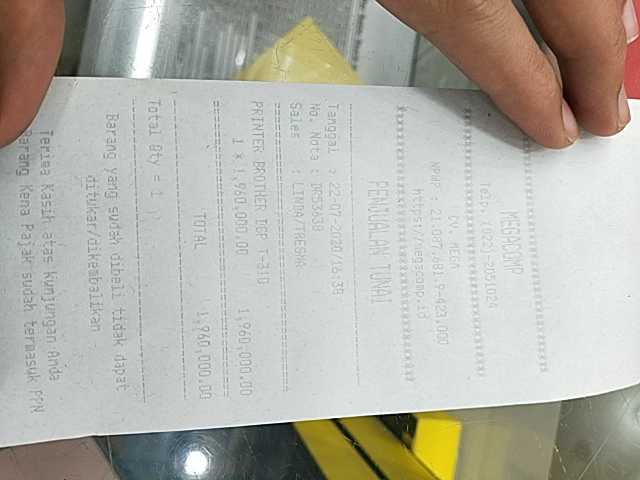 MEGACOMP
Telp. (022)-2051024
************************************
CV. MEGA
NPWP : 21.087.681.9-423.000
https://megacomp.id
************************************
PENJUALAN TUNAI
Tanggal : 22-07-2020/16:38
No. Nota :
Sales : LINDA/TRESNA
PRINTER BROTHER DCP T-310
1 x 1,960,000.00 1,960,000.00
TOTAL 1,960,000.00
Total Qty = 1
Barang yang sudah dibeli tidak dapat
ditukar/dikembalikan
Terima Kasih atas Kunjungan Anda
Barang Kena Pajak sudah termasuk PPN